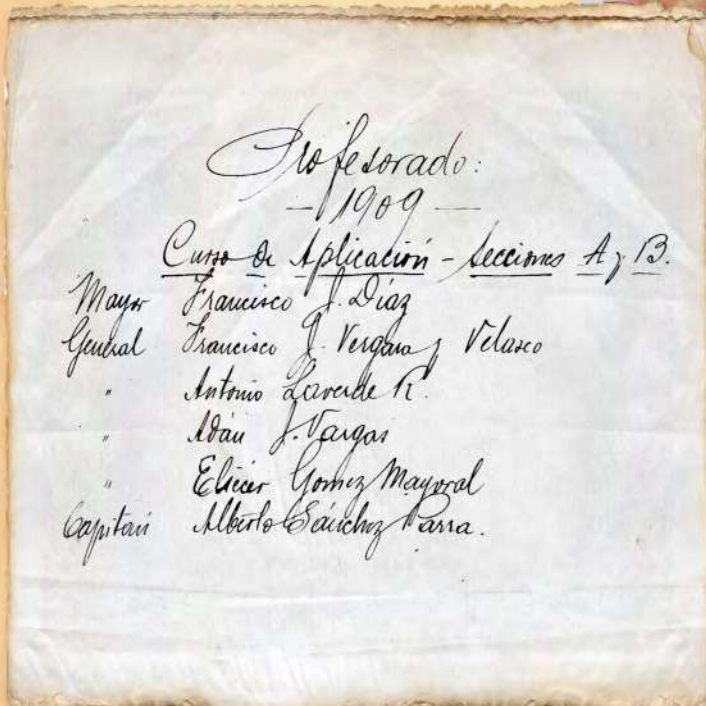 Profesorado:
— 1909 —
Curso de Aplicación - Secciones A y B.
Mayor Francisco J. Díaz
General Francisco J. Vergara y Velasco
" Antonio Laverde R.
" Adán J. Vargas
" Eliécer Gomez Mayoral
Capitán Alberto Sánchez Parra.